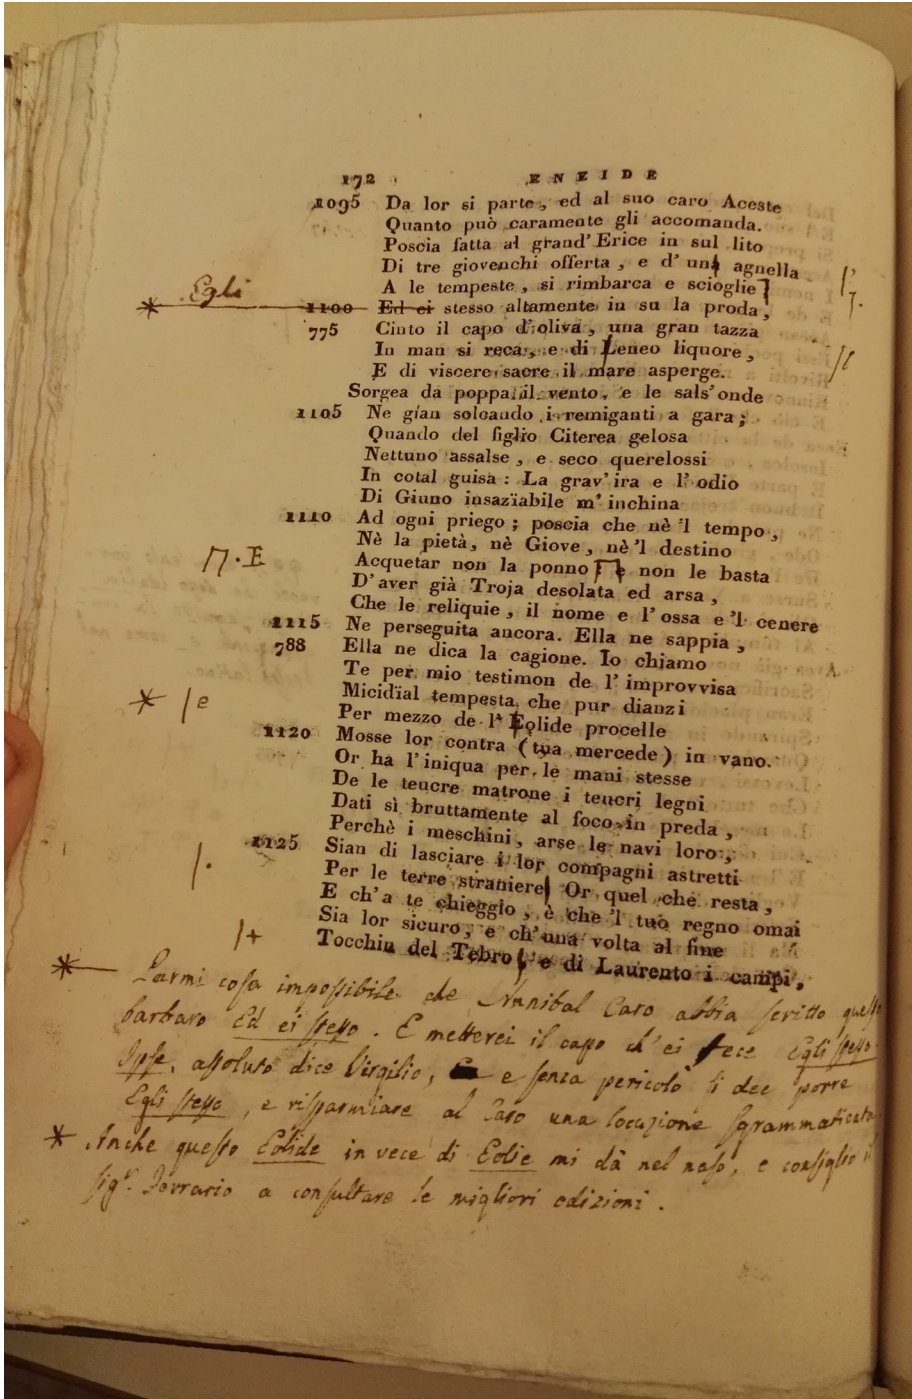 172 ENEIDE
1095 Da lor si parte, ed al suo caro Aceste
Quanto può caramente gli accomanda.
Poscia fatta al grand'Erice in sul lito
Di tre giovenchi offerta, e d'una agnella
A le tempeste, si rimbarca e scioglie
Egli
1100 Ed ei stesso altamente in su la proda,
775 Cinto il capo d'oliva, una gran tazza
In man si reca, e di Leneo liquore,
E di viscere sacre il mare asperge.
Sorgea da poppa il vento, e le sals'onde
1105 Ne gían solcando i remiganti a gara;
Quando del figlio Citerea gelosa
Nettuno assalse, e seco querelossi
In cotal guisa: La grav'ira e l'odio
Di Giuno insazïabile m'inchina
1110 Ad ogni priego; poscia che nè 'l tempo,
Nè la pietà, nè Giove, nè 'l destino
Π. E
Acquetar non la ponno e non le basta
D'aver già Troja desolata ed arsa,
Che le reliquie, il nome e l'ossa e 'l cenere
1115 Ne perseguita ancora. Ella ne sappia,
788 Ella ne dica la cagione. Io chiamo
Te per mio testimon de l'improvvisa
Micidïal tempesta che pur dianzi
* e
Per mezzo de l'Eolide procelle
1120 Mosse lor contra (tua mercede) in vano.
Or ha l'iniqua per le mani stesse
De le teucre matrone i teucri legni
Dati sì bruttamente al foco in preda,
Perchè i meschini, arse le navi loro,
1125 Sian di lasciare i lor compagni astretti
Per le terre straniere Or quel che resta,
E ch'a te chieggio, è che 'l tuo regno omai
Sia lor sicuro, e ch'una volta al fine
Tocchin del Tebro e di Laurento i campi,
* Parmi cosa impossibile che Annibal Caro abbia scritto questo
barbaro Ed ei stesso. E metterei il capo ch'ei fece Egli stesso.
Ipse, assoluto dice Virgilio, e senza pericolo si dee porre
Egli stesso, e risparmiare al Caro una locuzione sgrammaticata
* Anche questo Eolide in vece di Eolie mi dà nel naso, e consiglio il
sigr. Ferrario a consultare le migliori edizioni.